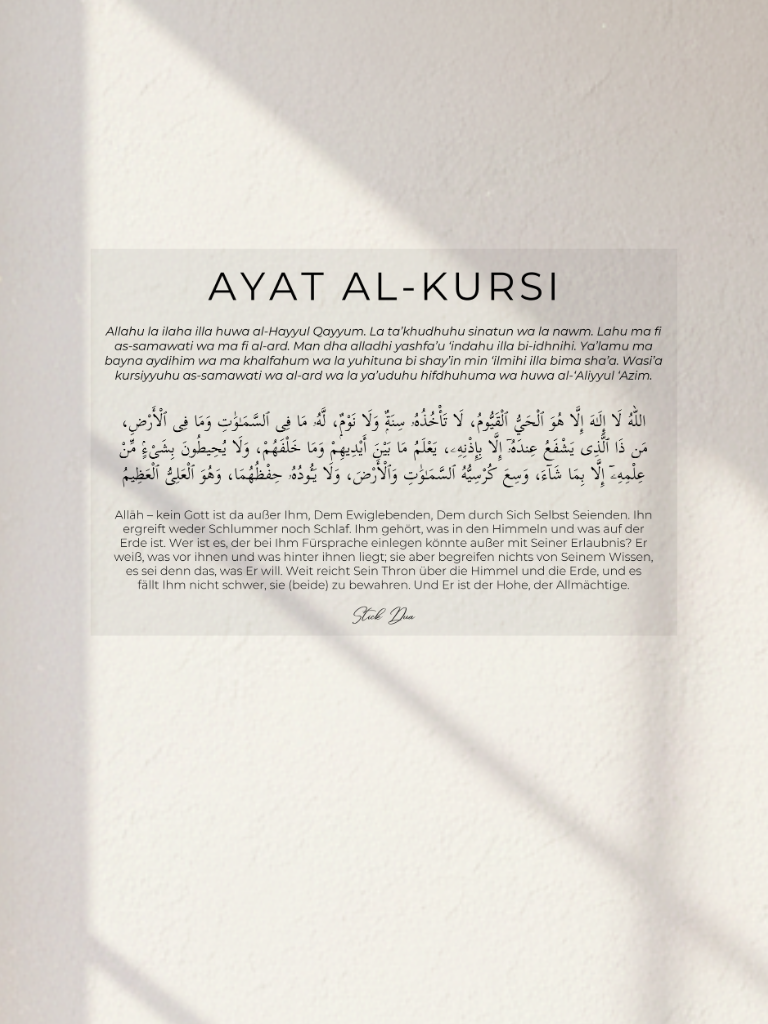 AYAT AL-KURSI
Allahu la ilaha illa huwa al-Hayyul Qayyum. La ta'khudhuhu sinatun wa la nawm. Lahu ma fi
as-samawati wa ma fi al-ard. Man dha alladhi yashfa'u 'indahu illa bi-idhnihi. Ya'lamu ma
bayna aydihim wa ma khalfahum wa la yuhituna bi shay'in min 'ilmihi illa bima sha'a. Wasi'a
kursiyyuhu as-samawati wa al-ard wa la ya'uduhu hifdhuhuma wa huwa al-'Aliyyul 'Azim.
اللَّهُ لَا إِلَٰهَ إِلَّا هُوَ ٱلْحَيُّ ٱلْقَيُّومُ، لَا تَأْخُذُهُۥ سِنَةٌ وَلَا نَوْمٌ، لَّهُۥ مَا فِى ٱلسَّمَٰوَٰتِ وَمَا فِى ٱلْأَرْضِ،
مَن ذَا ٱلَّذِى يَشْفَعُ عِندَهُۥٓ إِلَّا بِإِذْنِهِۦ، يَعْلَمُ مَا بَيْنَ أَيْدِيهِمْ وَمَا خَلْفَهُمْ، وَلَا يُحِيطُونَ بِشَىْءٍ مِّنْ
عِلْمِهِۦٓ إِلَّا بِمَا شَآءَ، وَسِعَ كُرْسِيُّهُ ٱلسَّمَٰوَٰتِ وَٱلْأَرْضَ، وَلَا يَـُٔودُهُۥ حِفْظُهُمَا، وَهُوَ ٱلْعَلِىُّ ٱلْعَظِيمُ
Allāh – kein Gott ist da außer Ihm, Dem Ewiglebenden, Dem durch Sich Selbst Seienden. Ihn
ergreift weder Schlummer noch Schlaf. Ihm gehört, was in den Himmeln und was auf der
Erde ist. Wer ist es, der bei Ihm Fürsprache einlegen könnte außer mit Seiner Erlaubnis? Er
weiß, was vor ihnen und was hinter ihnen liegt; sie aber begreifen nichts von Seinem Wissen,
es sei denn das, was Er will. Weit reicht Sein Thron über die Himmel und die Erde, und es
fällt Ihm nicht schwer, sie (beide) zu bewahren. Und Er ist der Hohe, der Allmächtige.
Stick Dua